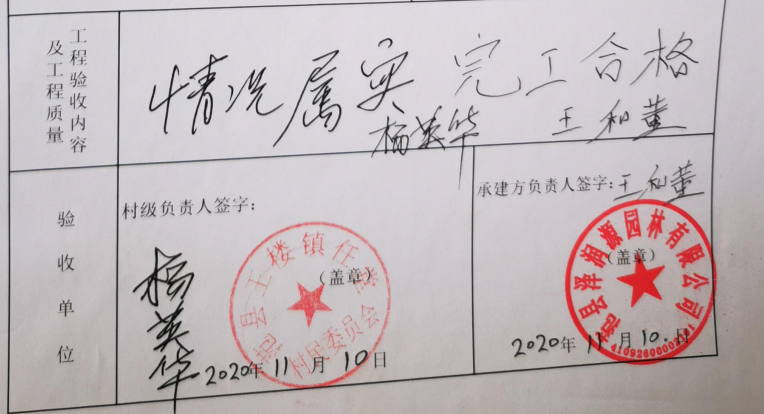 工程验收内容
及工程质量
情况属实 完工合格
杨英华 王和董
验收单位
村级负责人签字：
杨英华
（盖章）
村民委员会
2020年11月10日
承建方负责人签字：王和董
（盖章）
县泽润源园林有限公司
2020年11月10日